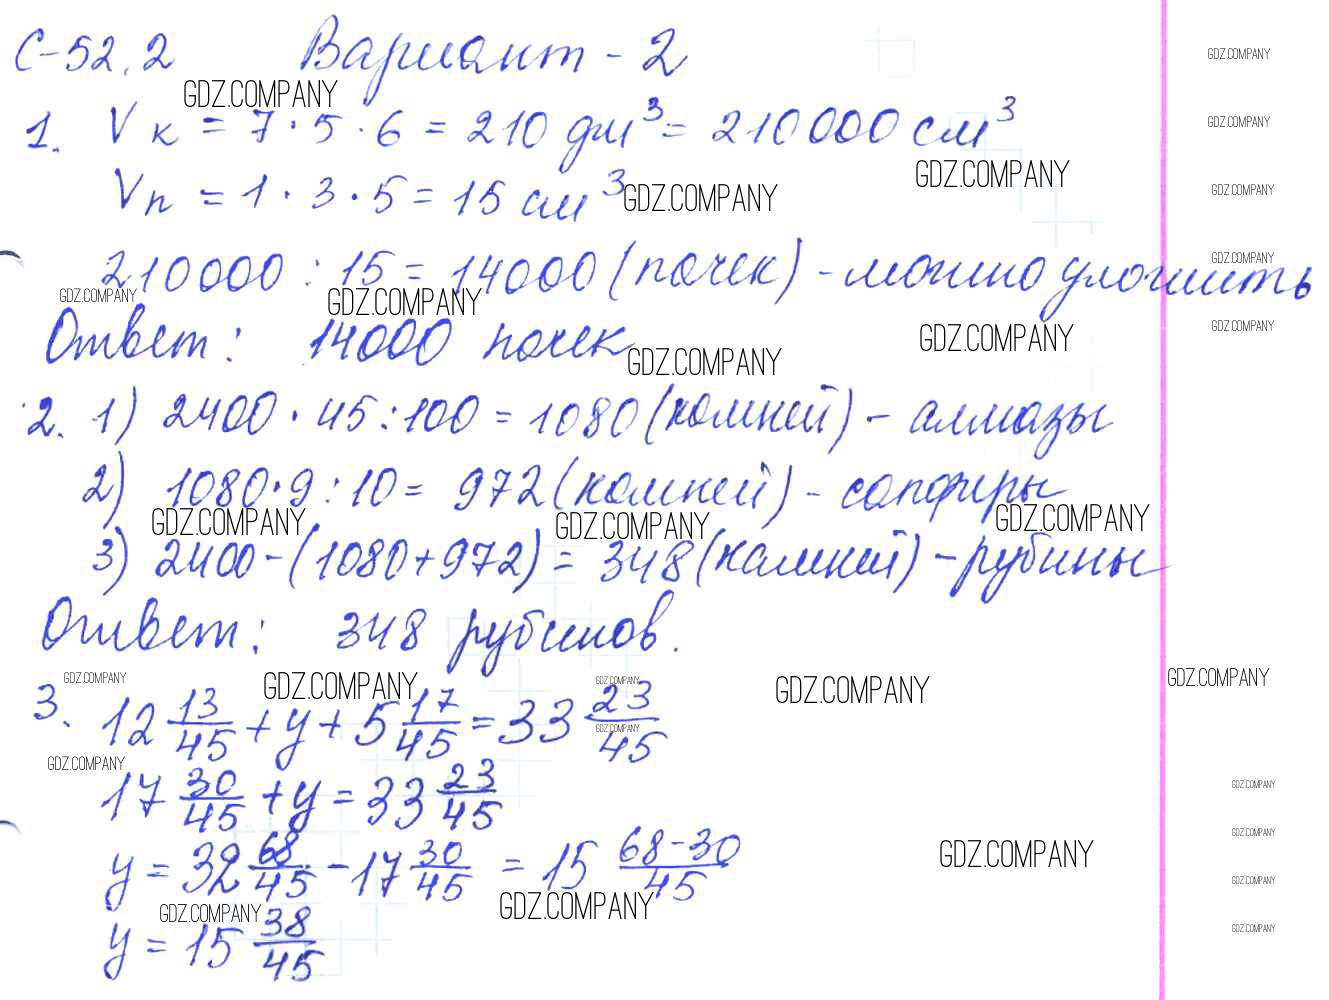 С-52.2 Вариант - 2
GDZ.COMPANY GDZ.COMPANY
1. Vк = 7 · 5 · 6 = 210 дм³ = 210000 см³ GDZ.COMPANY
GDZ.COMPANY
Vп = 1 · 3 · 5 = 15 см³ GDZ.COMPANY GDZ.COMPANY
210000 : 15 = 14000 (пачек) - можно уложить GDZ.COMPANY
GDZ.COMPANY GDZ.COMPANY
Ответ: 14000 пачек GDZ.COMPANY GDZ.COMPANY GDZ.COMPANY
2. 1) 2400 · 45 : 100 = 1080 (камней) - алмазы
2) 1080 · 9 : 10 = 972 (камней) - сапфиры
GDZ.COMPANY GDZ.COMPANY GDZ.COMPANY
3) 2400 - (1080 + 972) = 348 (камней) - рубины
Ответ: 348 рубинов.
GDZ.COMPANY GDZ.COMPANY GDZ.COMPANY GDZ.COMPANY GDZ.COMPANY
3. 12 13/45 + y + 5 17/45 = 33 23/45 GDZ.COMPANY
GDZ.COMPANY
17 30/45 + y = 33 23/45 GDZ.COMPANY
GDZ.COMPANY
y = 32 68/45 - 17 30/45 = 15 (68-30)/45 GDZ.COMPANY GDZ.COMPANY
GDZ.COMPANY GDZ.COMPANY
y = 15 38/45 GDZ.COMPANY